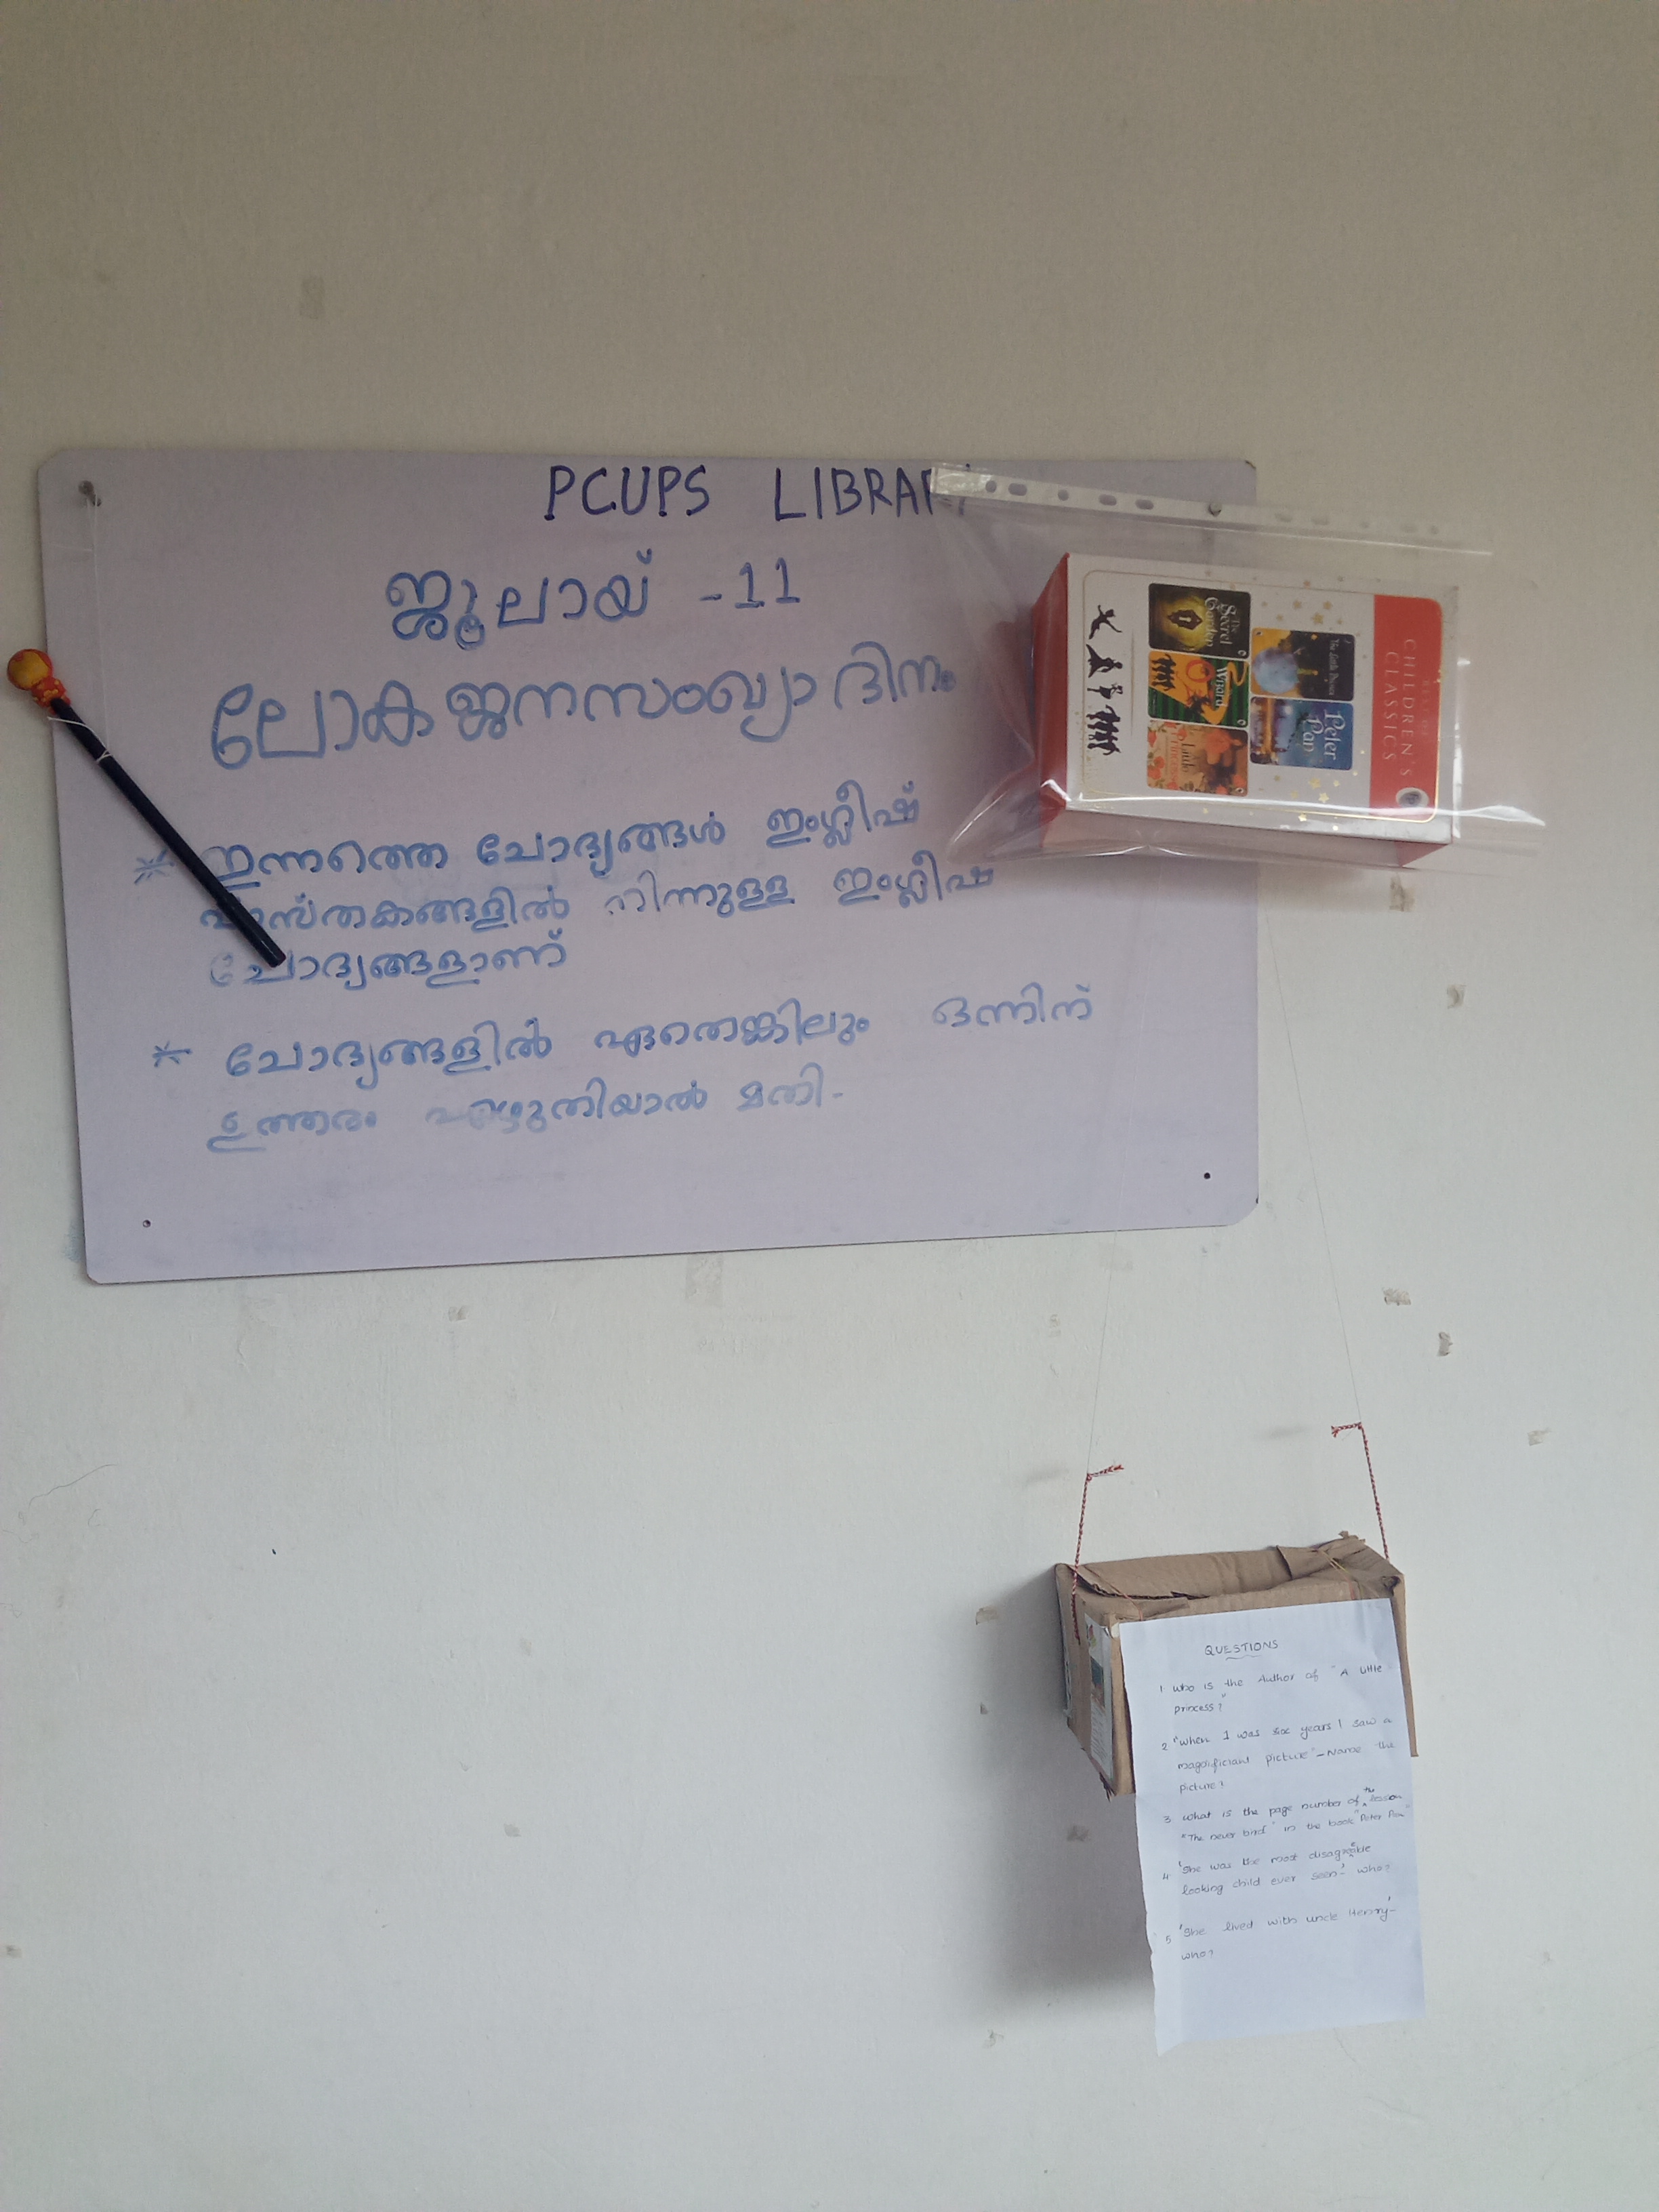 PCUPS LIBRARY
ജൂലായ് -11
ലോകജനസംഖ്യാദിനം
* ഇന്നത്തെ ചോദ്യങ്ങൾ ഇംഗ്ലീഷ്
പുസ്തകങ്ങളിൽ നിന്നുള്ള ഇംഗ്ലീഷ്
ചോദ്യങ്ങളാണ്
* ചോദ്യങ്ങളിൽ ഏതെങ്കിലും ഒന്നിന്
ഉത്തരം എഴുതിയാൽ മതി-
CHILDREN'S
CLASSICS
The Little Prince
Peter
Pan
The
Secret
Garden
Wizard
Little
Princess
QUESTIONS
1 who is the Author of "A little
princess"?
2 "when I was six years I saw a
magnificiant picture" - Name the
picture?
3 what is the page number of the lesson
"The never bird" in the book "Peter Pan"
4 'She was the most disagreeble
looking child ever seen'- who?
5 'She lived with uncle Henry'-
who?